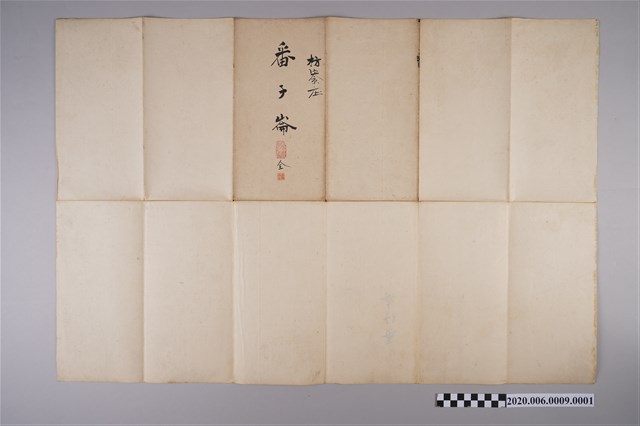 枋寮庄
番子崙
全
2020.006.0009.0001